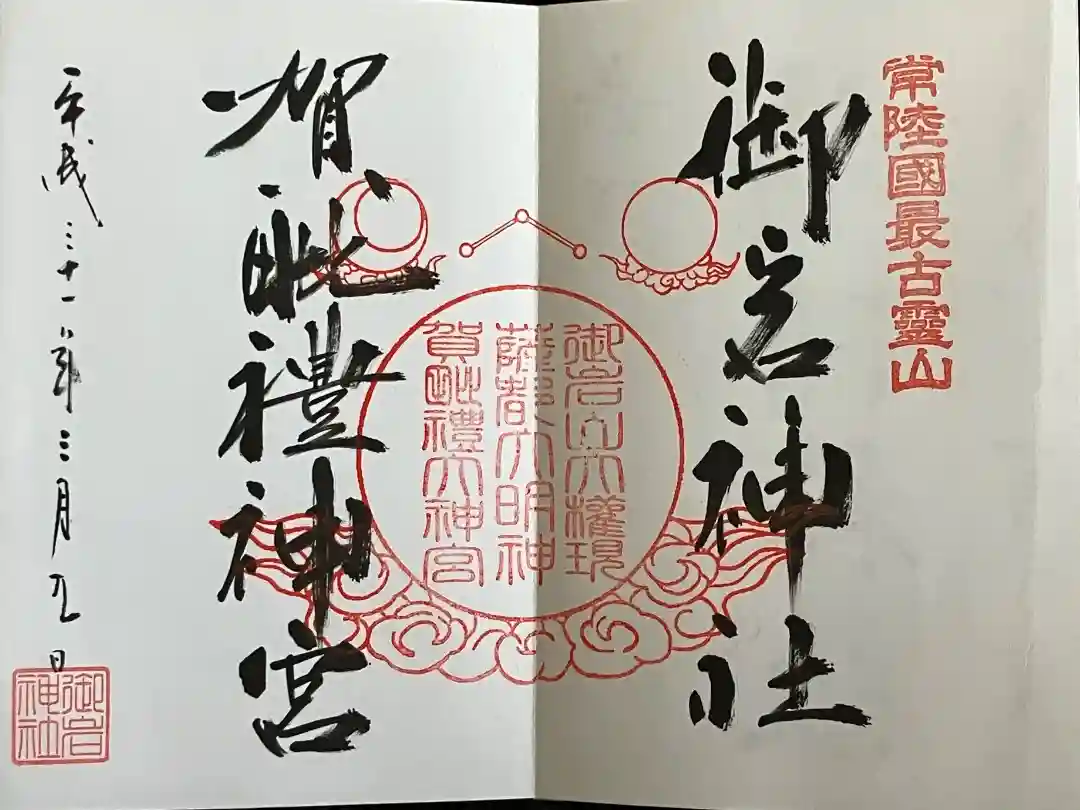 常陸國最古靈山
御岩神社
御岩山大権現
薩都大明神
賀毗禮大神宮
賀毗禮神宮
平成三十一年三月九日
御岩神社